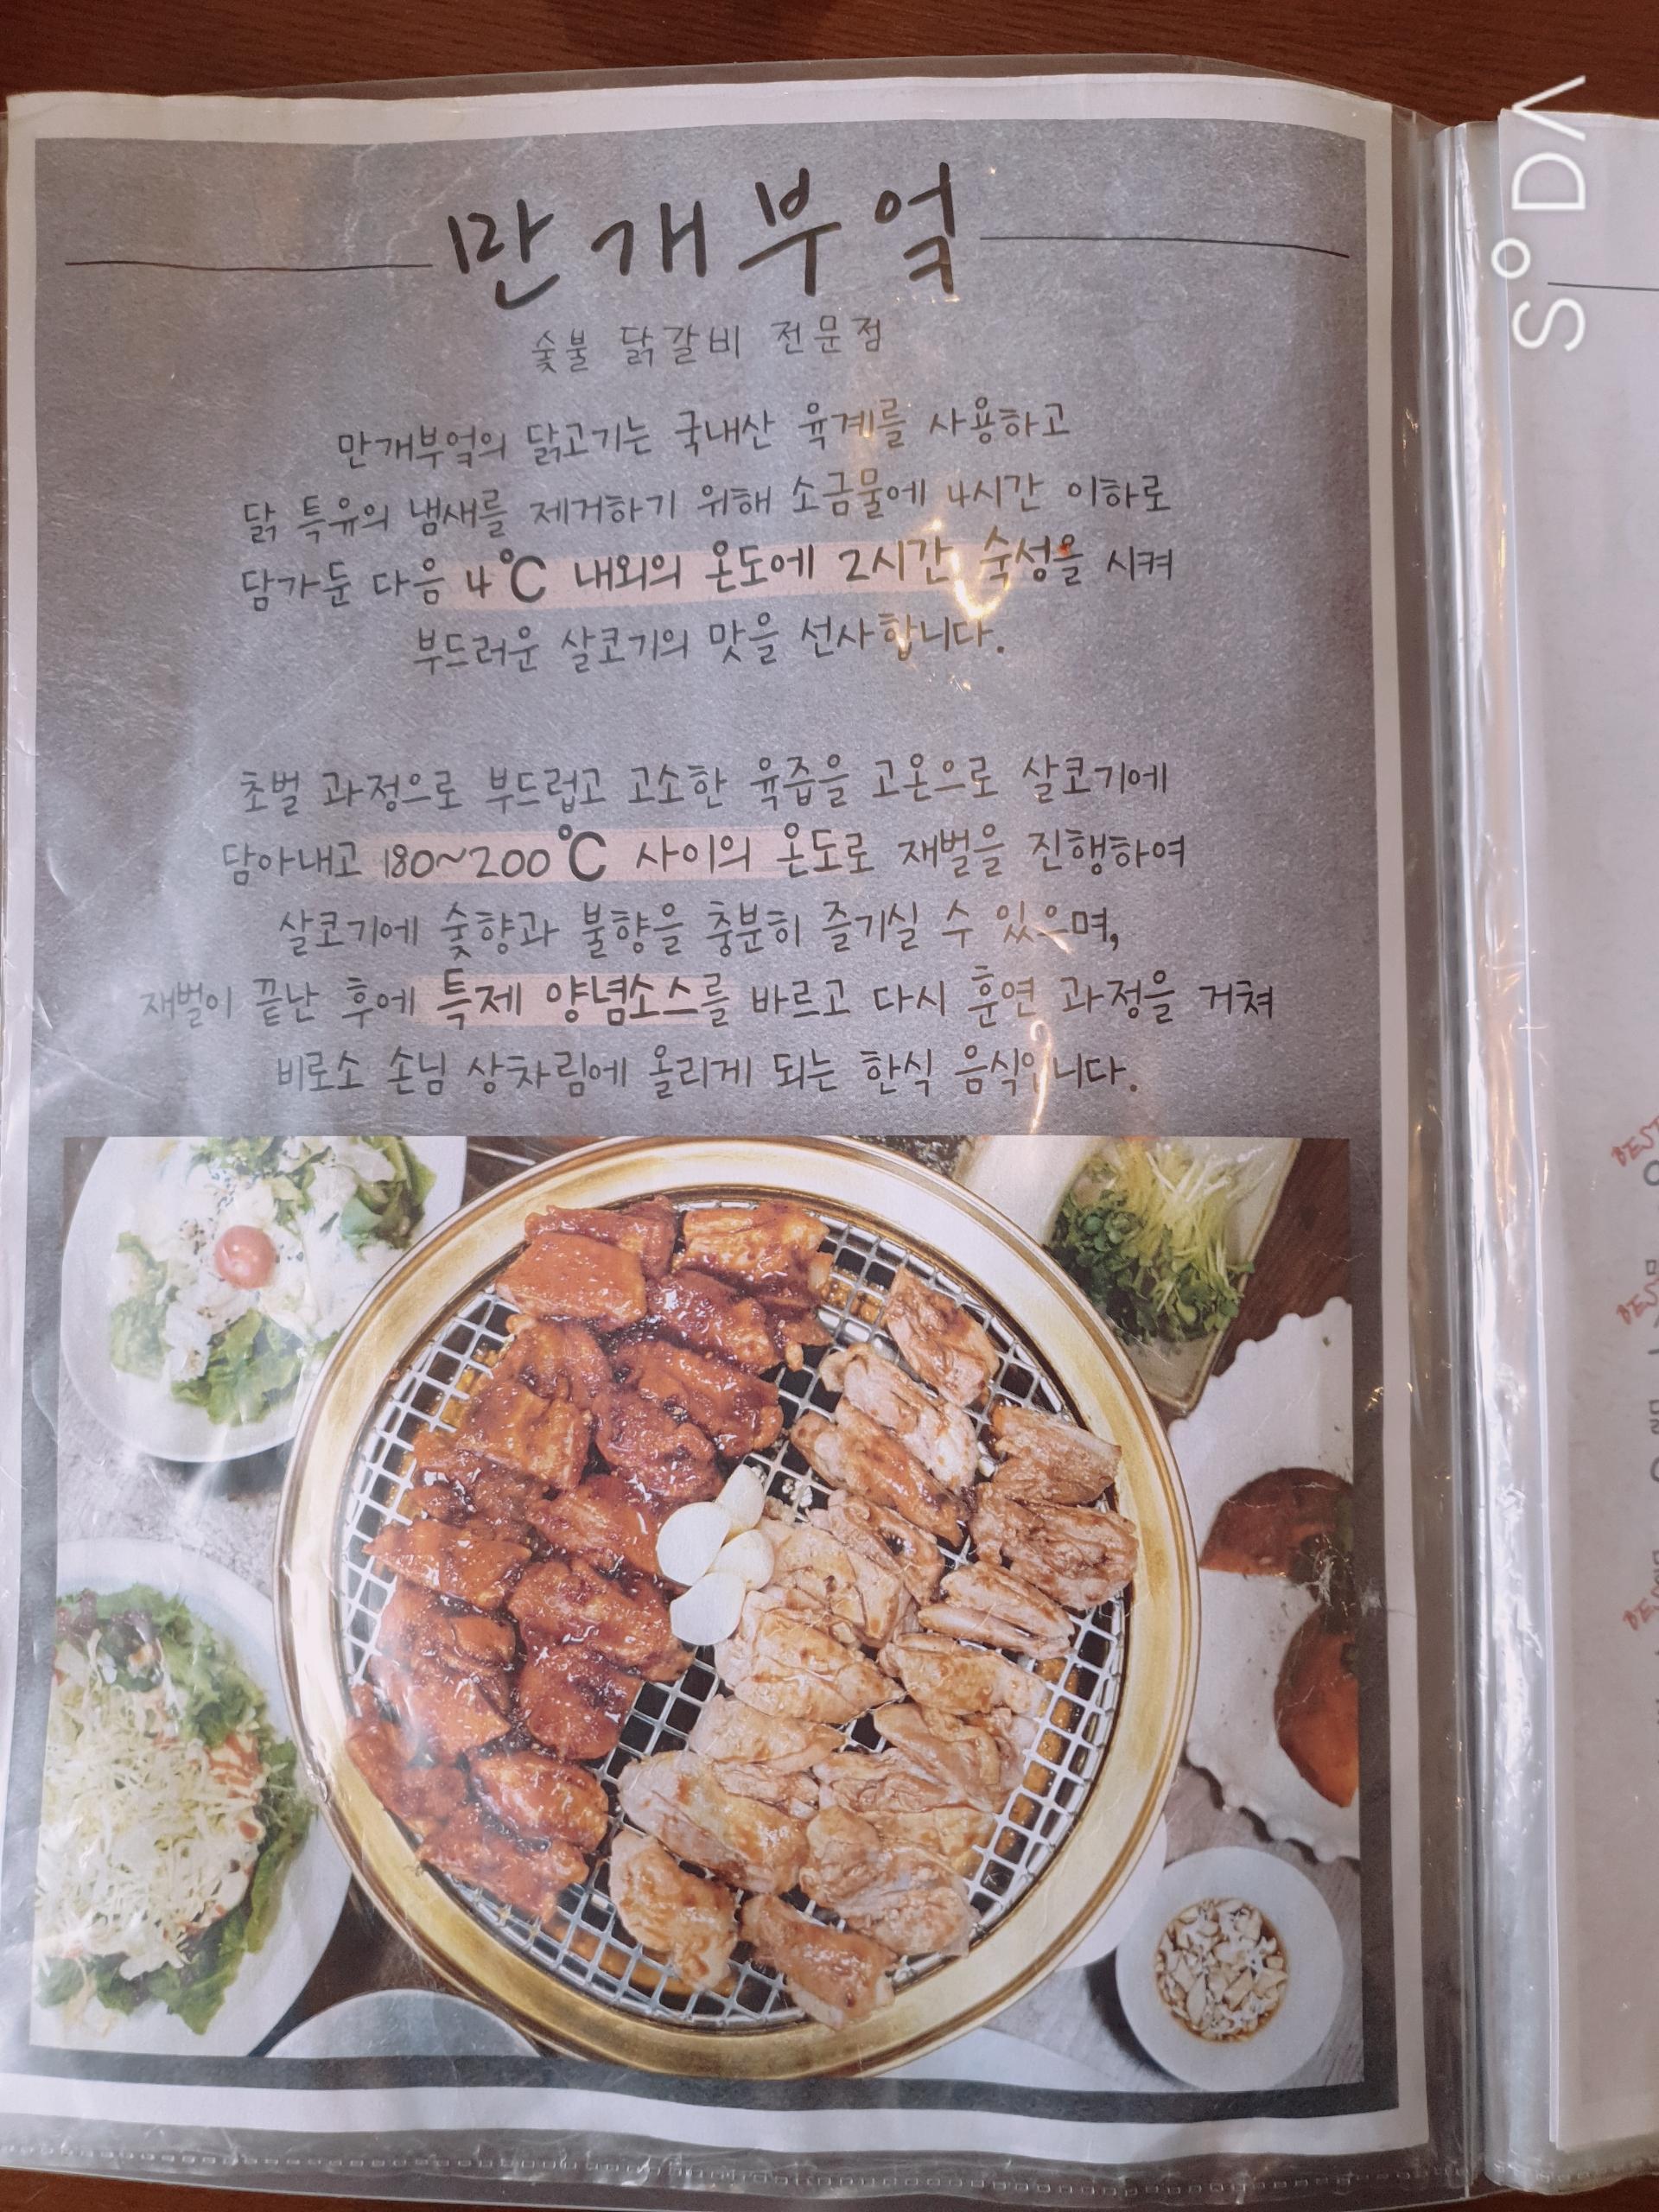 만개부엌
숯불 닭갈비 전문점
만개부엌의 닭고기는 국내산 육계를 사용하고
닭 특유의 냄새를 제거하기 위해 소금물에 4시간 이하로
담가둔 다음 4℃ 내외의 온도에 2시간 숙성을 시켜
부드러운 살코기의 맛을 선사합니다.
초벌 과정으로 부드럽고 고소한 육즙을 고온으로 살코기에
담아내고 180~200℃ 사이의 온도로 재벌을 진행하여
살코기에 숯향과 불향을 충분히 즐기실 수 있으며,
재벌이 끝난 후에 특제 양념소스를 바르고 다시 훈연 과정을 거쳐
비로소 손님 상차림에 올리게 되는 한식 음식입니다.
SODA
BEST